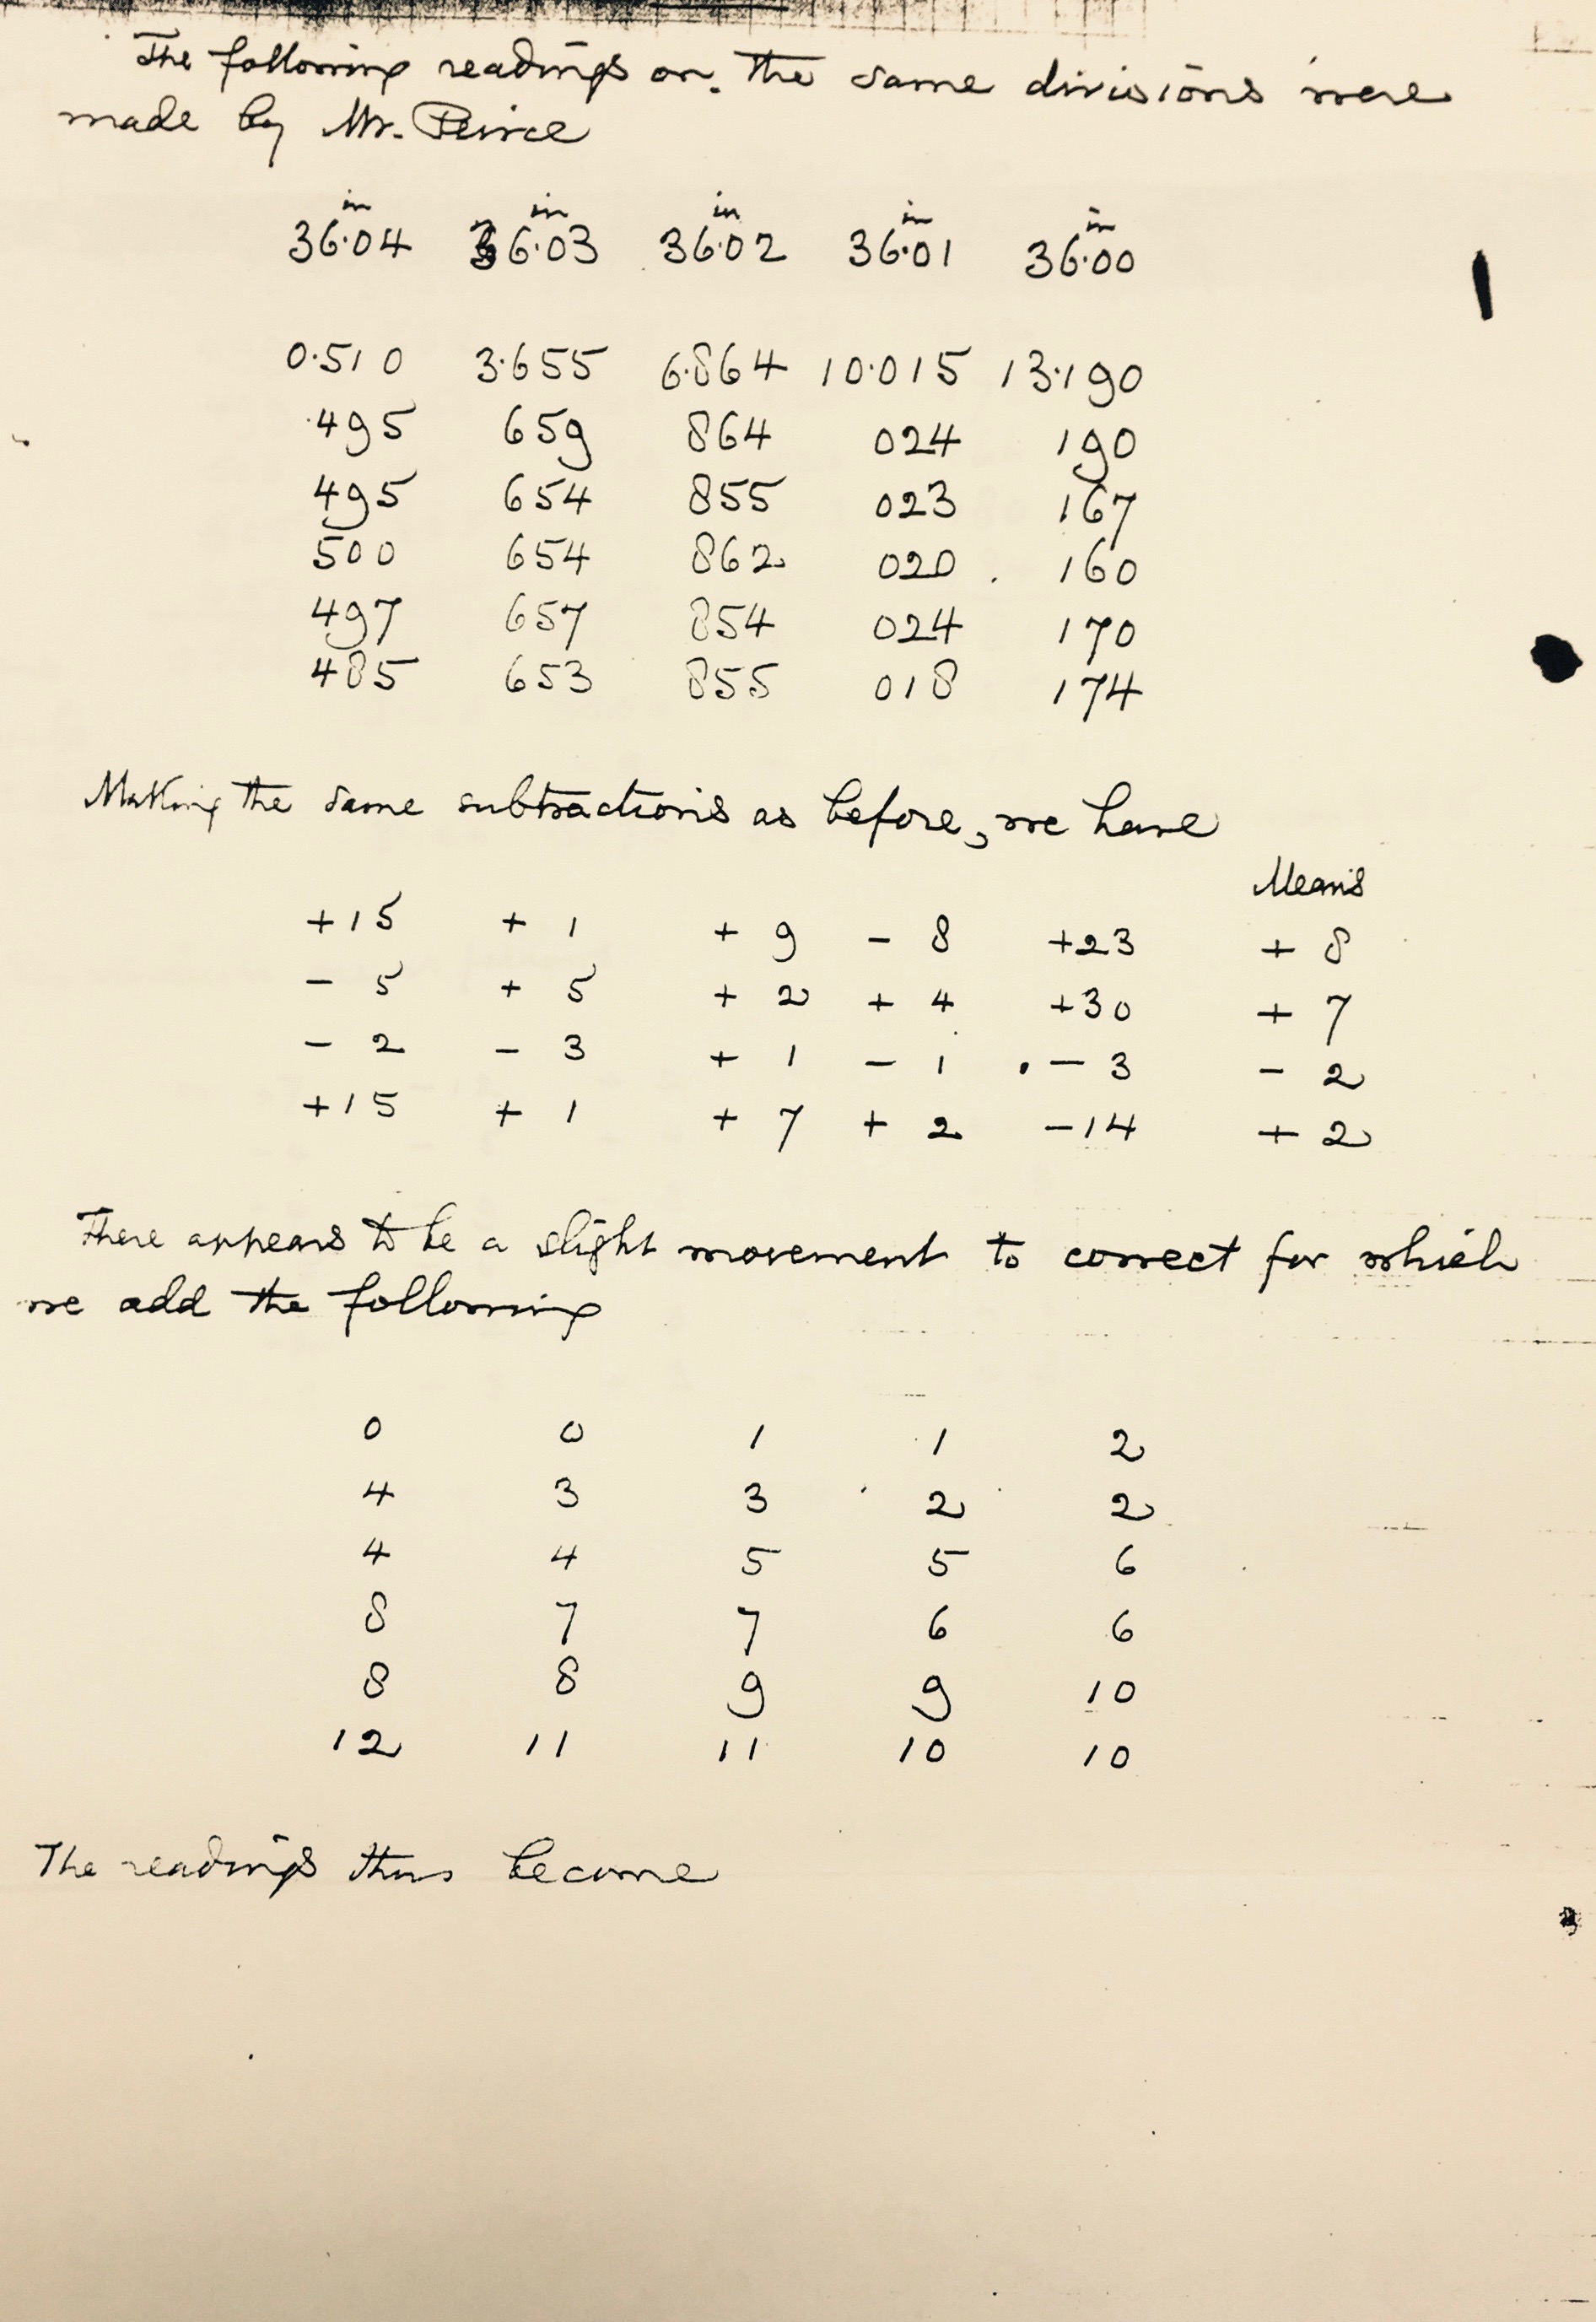 The following readings on the same divisions were
made by Mr. Peirce
in in in in in
36.04 36.03 36.02 36.01 36.00
0.510 3.655 6.864 10.015 13.190
.495 659 864 024 190
495 654 855 023 167
500 654 862 020 160
497 657 854 024 170
485 653 855 018 174
Making the same subtractions as before, we have
Means
+15 + 1 + 9 - 8 +23 + 8
- 5 + 5 + 2 + 4 +30 + 7
- 2 - 3 + 1 - 1 - 3 - 2
+15 + 1 + 7 + 2 -14 + 2
There appears to be a slight movement to correct for which
we add the following
0 0 1 1 2
4 3 3 2 2
4 4 5 5 6
8 7 7 6 6
8 8 9 9 10
12 11 11 10 10
The readings thus become